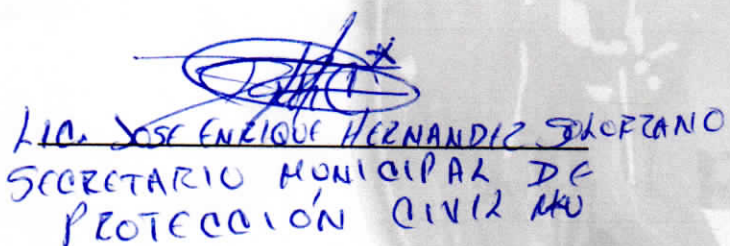 LIC. JOSE ENRIQUE HERNANDEZ SOLORZANO
SECRETARIO MUNICIPAL DE
PROTECCIÓN CIVIL